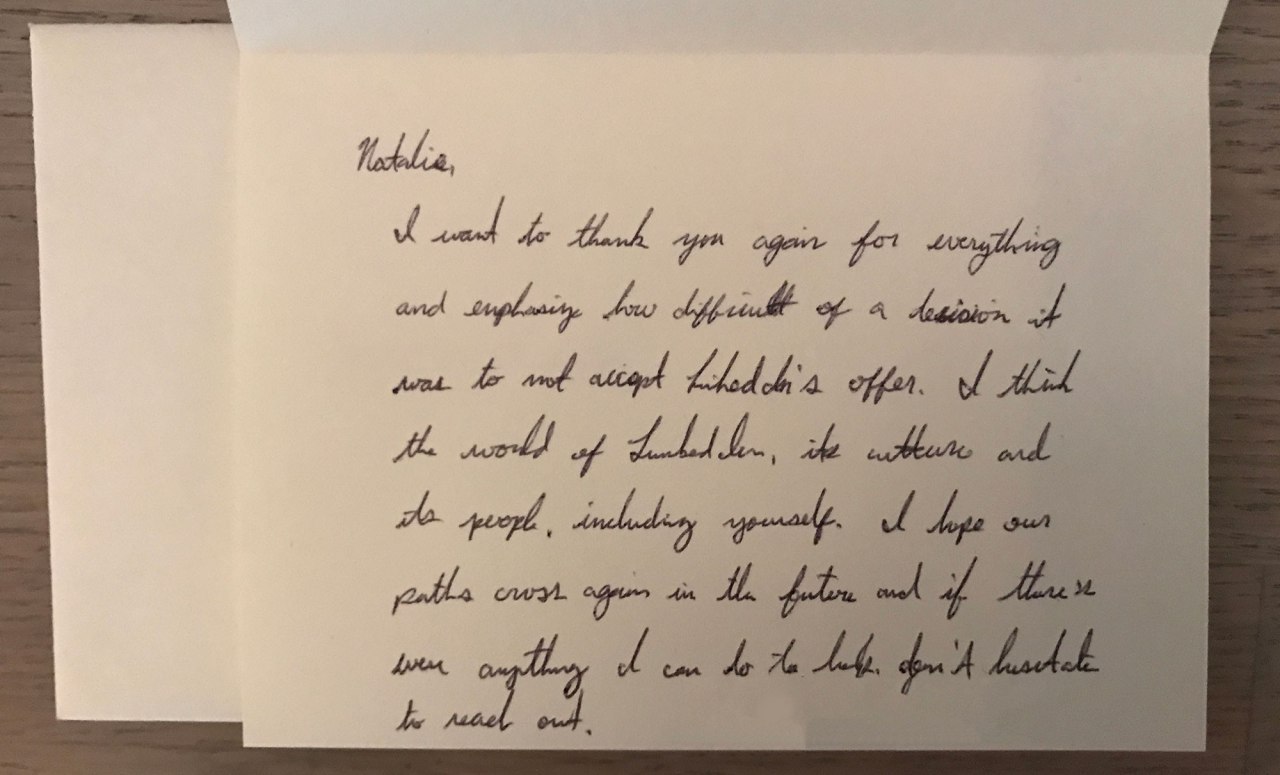 Natalie,
I want to thank you again for everything
and emphasize how difficult of a decision it
was to not accept offer. I think
the world of its culture and
its people, including yourself. I hope our
paths cross again in the future and if there's
ever anything I can do to help, don't hesitate
to reach out.